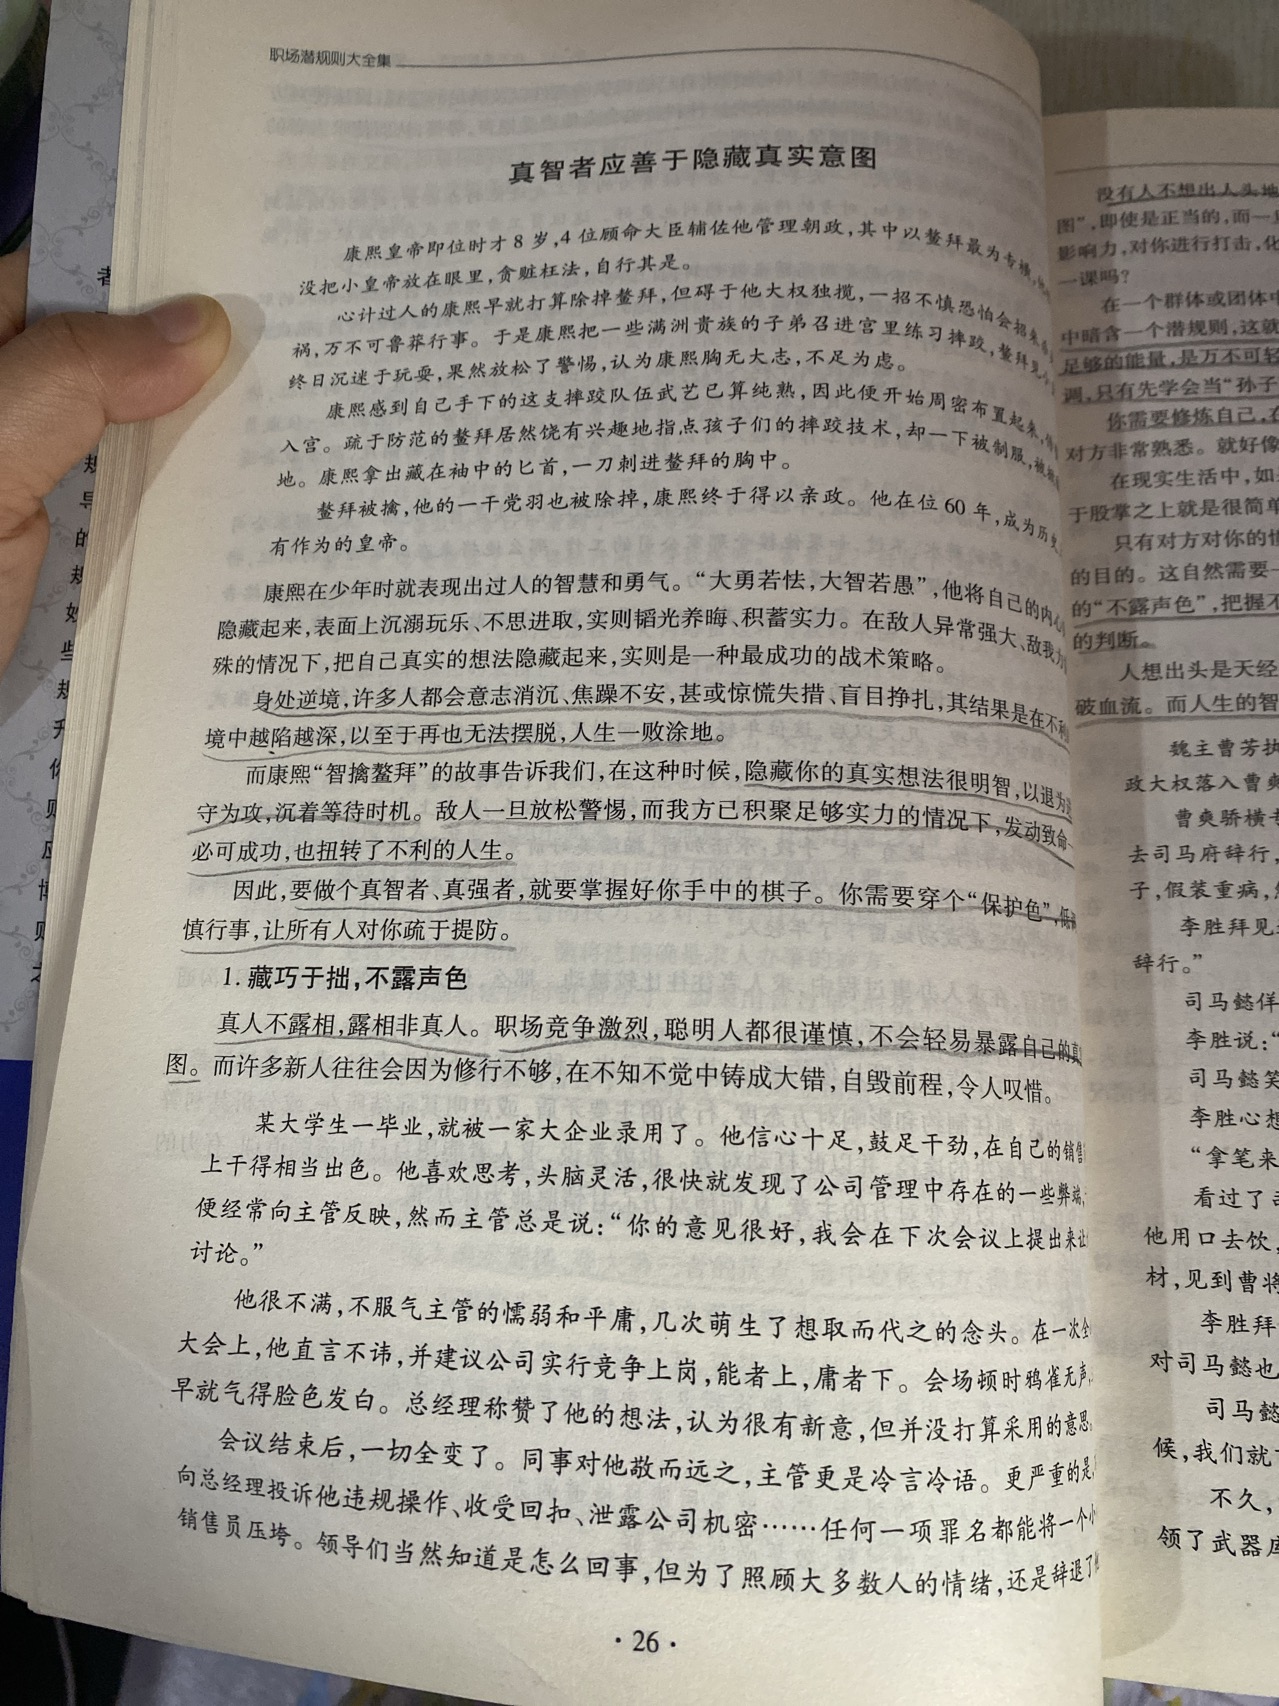 职场潜规则大全集
真智者应善于隐藏真实意图
康熙皇帝即位时才8岁,4位顾命大臣辅佐他管理朝政,其中以鳌拜最为专横,
没把小皇帝放在眼里,贪赃枉法,自行其是。
心计过人的康熙早就打算除掉鳌拜,但碍于他大权独揽,一招不慎恐怕会招来
祸,万不可鲁莽行事。于是康熙把一些满洲贵族的子弟召进宫里练习摔跤,鳌拜见
终日沉迷于玩耍,果然放松了警惕,认为康熙胸无大志,不足为虑。
康熙感到自己手下的这支摔跤队伍武艺已算纯熟,因此便开始周密布置起来,
入宫。疏于防范的鳌拜居然饶有兴趣地指点孩子们的摔跤技术,却一下被制服,被
地。康熙拿出藏在袖中的匕首,一刀刺进鳌拜的胸中。
鳌拜被擒,他的一干党羽也被除掉,康熙终于得以亲政。他在位60年,成为历史
有作为的皇帝。
康熙在少年时就表现出过人的智慧和勇气。“大勇若怯,大智若愚”,他将自己的内心
隐藏起来,表面上沉溺玩乐、不思进取,实则韬光养晦、积蓄实力。在敌人异常强大、敌我力
殊的情况下,把自己真实的想法隐藏起来,实则是一种最成功的战术策略。
身处逆境,许多人都会意志消沉、焦躁不安,甚或惊慌失措、盲目挣扎,其结果是在不利
境中越陷越深,以至于再也无法摆脱,人生一败涂地。
而康熙“智擒鳌拜”的故事告诉我们,在这种时候,隐藏你的真实想法很明智,以退为进
守为攻,沉着等待时机。敌人一旦放松警惕,而我方已积聚足够实力的情况下,发动致命一
必可成功,也扭转了不利的人生。
因此,要做个真智者、真强者,就要掌握好你手中的棋子。你需要穿个“保护色”,低调
慎行事,让所有人对你疏于提防。
1. 藏巧于拙,不露声色
真人不露相,露相非真人。职场竞争激烈,聪明人都很谨慎,不会轻易暴露自己的真
图。而许多新人往往会因为修行不够,在不知不觉中铸成大错,自毁前程,令人叹惜。
某大学生一毕业,就被一家大企业录用了。他信心十足,鼓足干劲,在自己的销售
上干得相当出色。他喜欢思考,头脑灵活,很快就发现了公司管理中存在的一些弊端,
便经常向主管反映,然而主管总是说:“你的意见很好,我会在下次会议上提出来让
讨论。”
他很不满,不服气主管的懦弱和平庸,几次萌生了想取而代之的念头。在一次全
大会上,他直言不讳,并建议公司实行竞争上岗,能者上,庸者下。会场顿时鸦雀无声,
早就气得脸色发白。总经理称赞了他的想法,认为很有新意,但并没打算采用的意思。
会议结束后,一切全变了。同事对他敬而远之,主管更是冷言冷语。更严重的是,
向总经理投诉他违规操作、收受回扣、泄露公司机密……任何一项罪名都能将一个小
销售员压垮。领导们当然知道是怎么回事,但为了照顾大多数人的情绪,还是辞退了他
·26·
没有人不想出人头地
图”,即使是正当的,而一
影响力,对你进行打击,化
一课吗?
在一个群体或团体中
中暗含一个潜规则,这就
足够的能量,是万不可轻
调,只有先学会当“孙子
你需要修炼自己,在
对方非常熟悉。就好像
在现实生活中,如
于股掌之上就是很简单
只有对方对你的
的目的。这自然需要一
的“不露声色”,把握不
的判断。
人想出头是天经
破血流。而人生的智
魏主曹芳执
政大权落入曹爽
曹爽骄横专
去司马府辞行,
子,假装重病,
李胜拜见
辞行。”
司马懿佯
李胜说:“
司马懿笑
李胜心想
“拿笔来
看过了
他用口去饮,
材,见到曹将
李胜拜
对司马懿也
司马懿
候,我们就
不久,
领了武器库